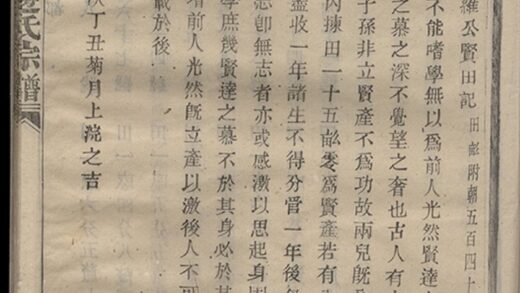 羅公賢田記 田畝附朝五百四十
不能嗜學無以爲前人光然賢達
之慕之深不覺望之奢也古人有
子孫非立賢產不爲功故兩兒旣
內揀田一十五畝零爲賢產若有
盡收一年諸生不得分管一年後
志卽無志者亦或感激以思起身
學庶幾賢達之慕不於其身必於其
者前人光然旣立產以激後人不
載於後
次丁丑菊月上浣之吉
氏宗譜